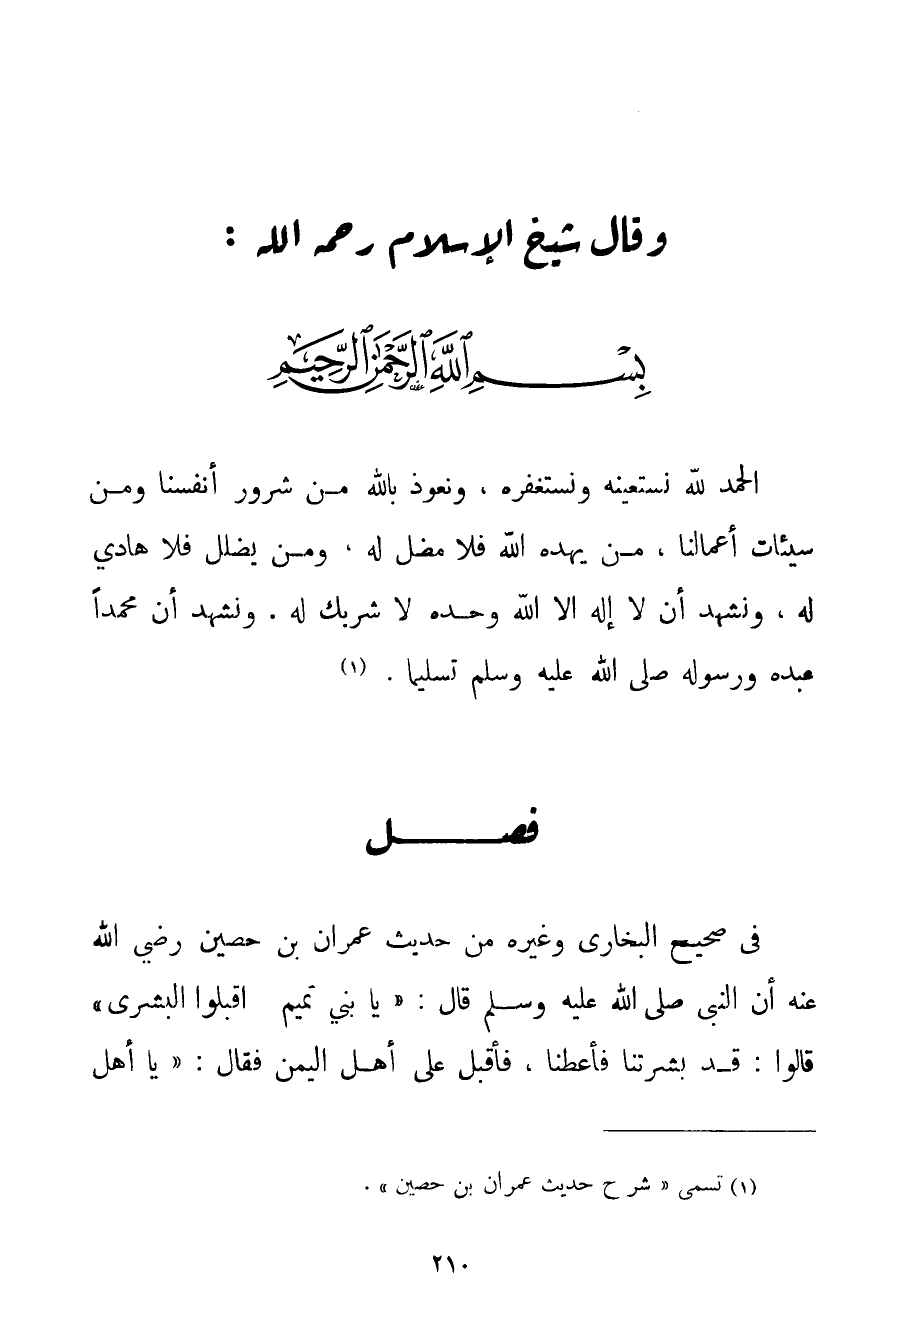 وقال شيخ الإسلام رحمه الله :
بسم الله الرحمن الرحيم
الحمد لله نستعينه ونستغفره ، ونعوذ بالله من شرور أنفسنا ومن
سيئات أعمالنا ، من يهده الله فلا مضل له ، ومن يضلل فلا هادي
له ، ونشهد أن لا إله الا الله وحده لا شريك له . ونشهد أن محمداً
عبده ورسوله صلى الله عليه وسلم تسليما . (١)
فصل
فى صحيح البخارى وغيره من حديث عمران بن حصين رضي الله
عنه أن النبى صلى الله عليه وسلم قال : « يا بني تميم اقبلوا البشرى »
قالوا : قد بشرتنا فأعطنا ، فأقبل على أهل اليمن فقال : « يا أهل
(١) تسمى « شرح حديث عمران بن حصين » .
٢١٠